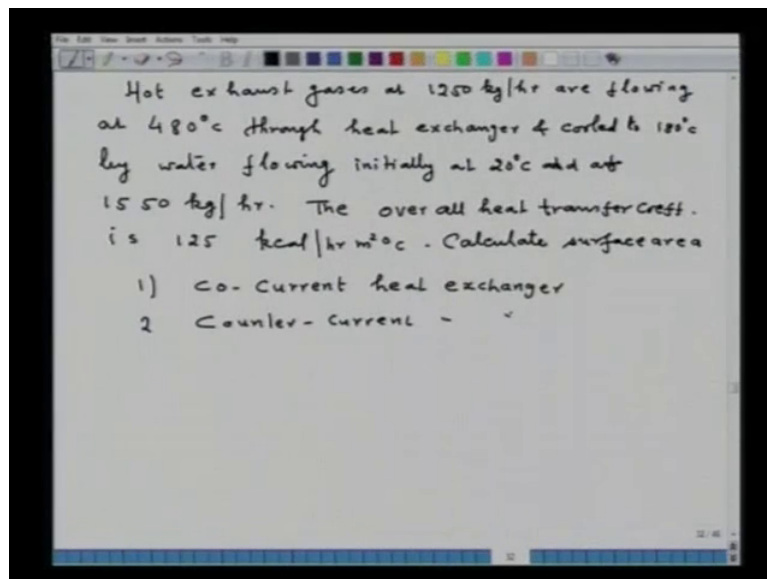 File Edit View Insert Actions Tools Help
Hot exhaust gases at 1250 kg/hr are flowing
at 480°c through heat exchanger & cooled to 180°c
by water flowing initially at 20°c and at
1550 kg/hr. The over all heat transfer coeff.
is 125 kcal/hr m²°c. Calculate surface area
1) Co-Current heat exchanger
2 Counter-Current - "
32